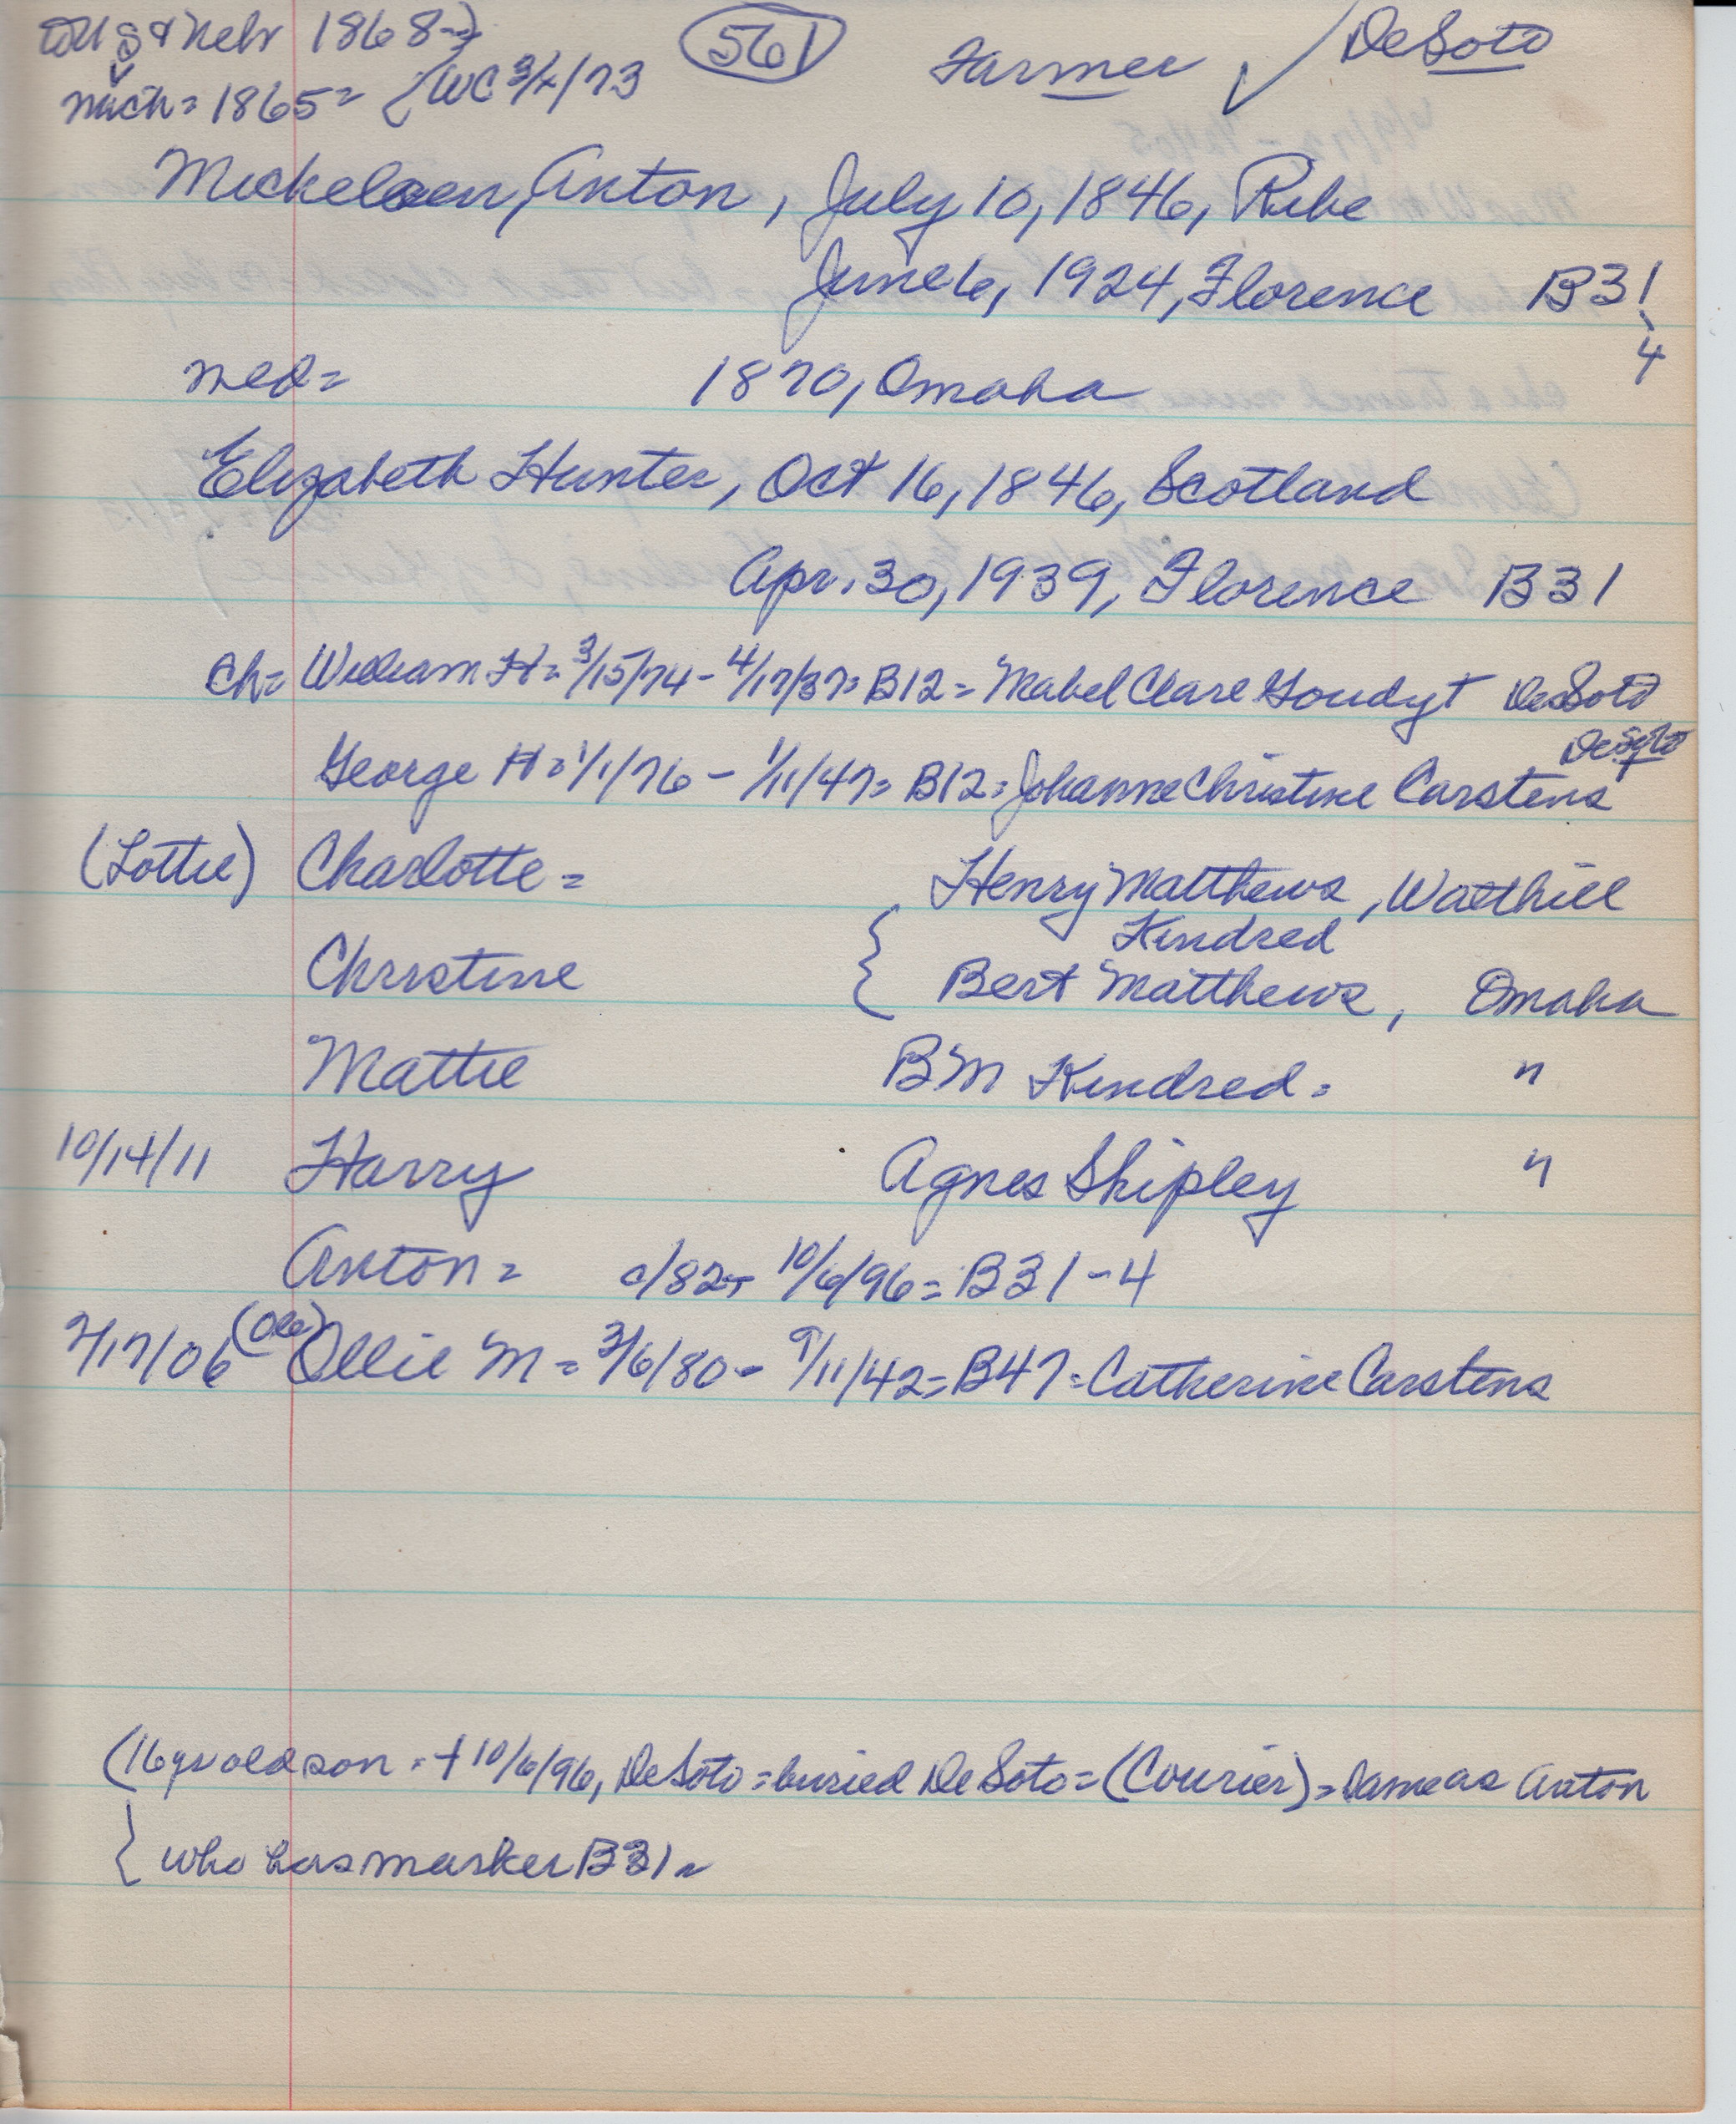 to US & Nebr 1868-)
Mich = 1865 = { WC 3/1/73
561
Farmer ✓ DeSoto
Mickelsen, Anton, July 10, 1846, Ribe
June 6, 1924, Florence B31-4
med = 1870, Omaha
Elizabeth Hunter, Oct 16, 1846, Scotland
Apr. 30, 1939, Florence B31
Ch = William H = 3/15/74 - 4/17/37 = B12 = Mabel Clare Goudy + DeSoto
George H = 1/1/76 - 1/11/47 = B12 = Johanne Christine Carstens DeSoto
(Lottie) Charlotte = Henry Matthews, Walthill
Kindred
Christine { Bert Matthews, Omaha
Mattie BM Kindred = "
10/14/11 Harry Agnes Shipley "
Anton = c/82 - 10/6/96 = B31-4
2/17/06 (Ole) Ollie M = 3/6/80 - 9/11/42 = B47 = Catherine Carstens
(16 yr old son = + 10/6/96, DeSoto = buried DeSoto = (Courier) = Same as Anton
{ who has marker B31 =